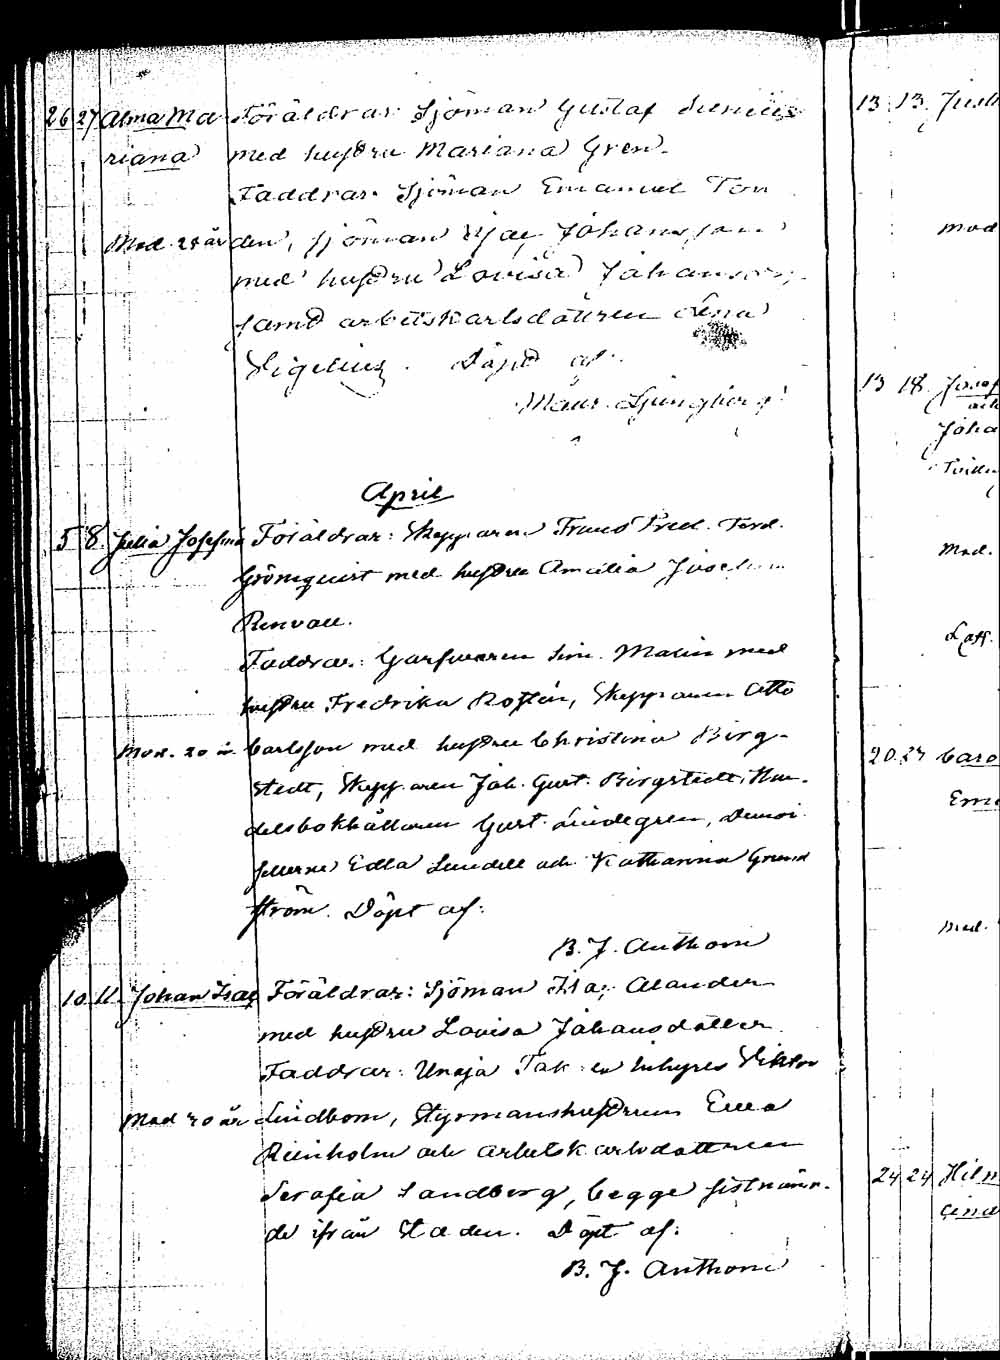 26 27 Alma Ma- Föräldrar: Sjöman Gustaf
riana med hustru Mariana Gren.
Faddrar: Sjöman Emanuel Ton
Mod. 28 år den, sjöman Isac Johansson
med hustru Lovisa Johansson,
samt arbetskarlsdottren Lena
Sigelius. Döpt af:
Maur. Ljungberg
April
5 8 Julia Josefina Föräldrar: Skepparen Frans Fred. Ferd.
Grönquist med hustru Amalia
Renvall.
Faddrar: Garfvaren Sim. Malin med
hustru Fredrika Roslin, Skepparen Otto
Mod. 20 år Carlsson med hustru Christina Birg-
stedt, Skepparen Joh. Gust. Birgstedt, Han-
delsbokhållaren Gust. Lindegren, Demoi
sellerne Edla Lundell och Katharina Grund
ström. Döpt af:
B. J. Anthoni
10 11 Johan Isac Föräldrar: Sjöman Isac Alander
med hustru Lovisa Johansdotter.
Faddrar: Unaja Inhyses Viktor
Mod 20 år Lindbom, Styrmanshustrun Eva
Reinholm och arbetskarlsdottren
Serafia Sandberg, begge sistnämn-
de ifrån Staden. Döpt af:
B. J. Anthoni
13 13
Mod
13 18 Josef
Joha
Mod.
20 27 Caro
Emi
Mod.
24 24 Hilm